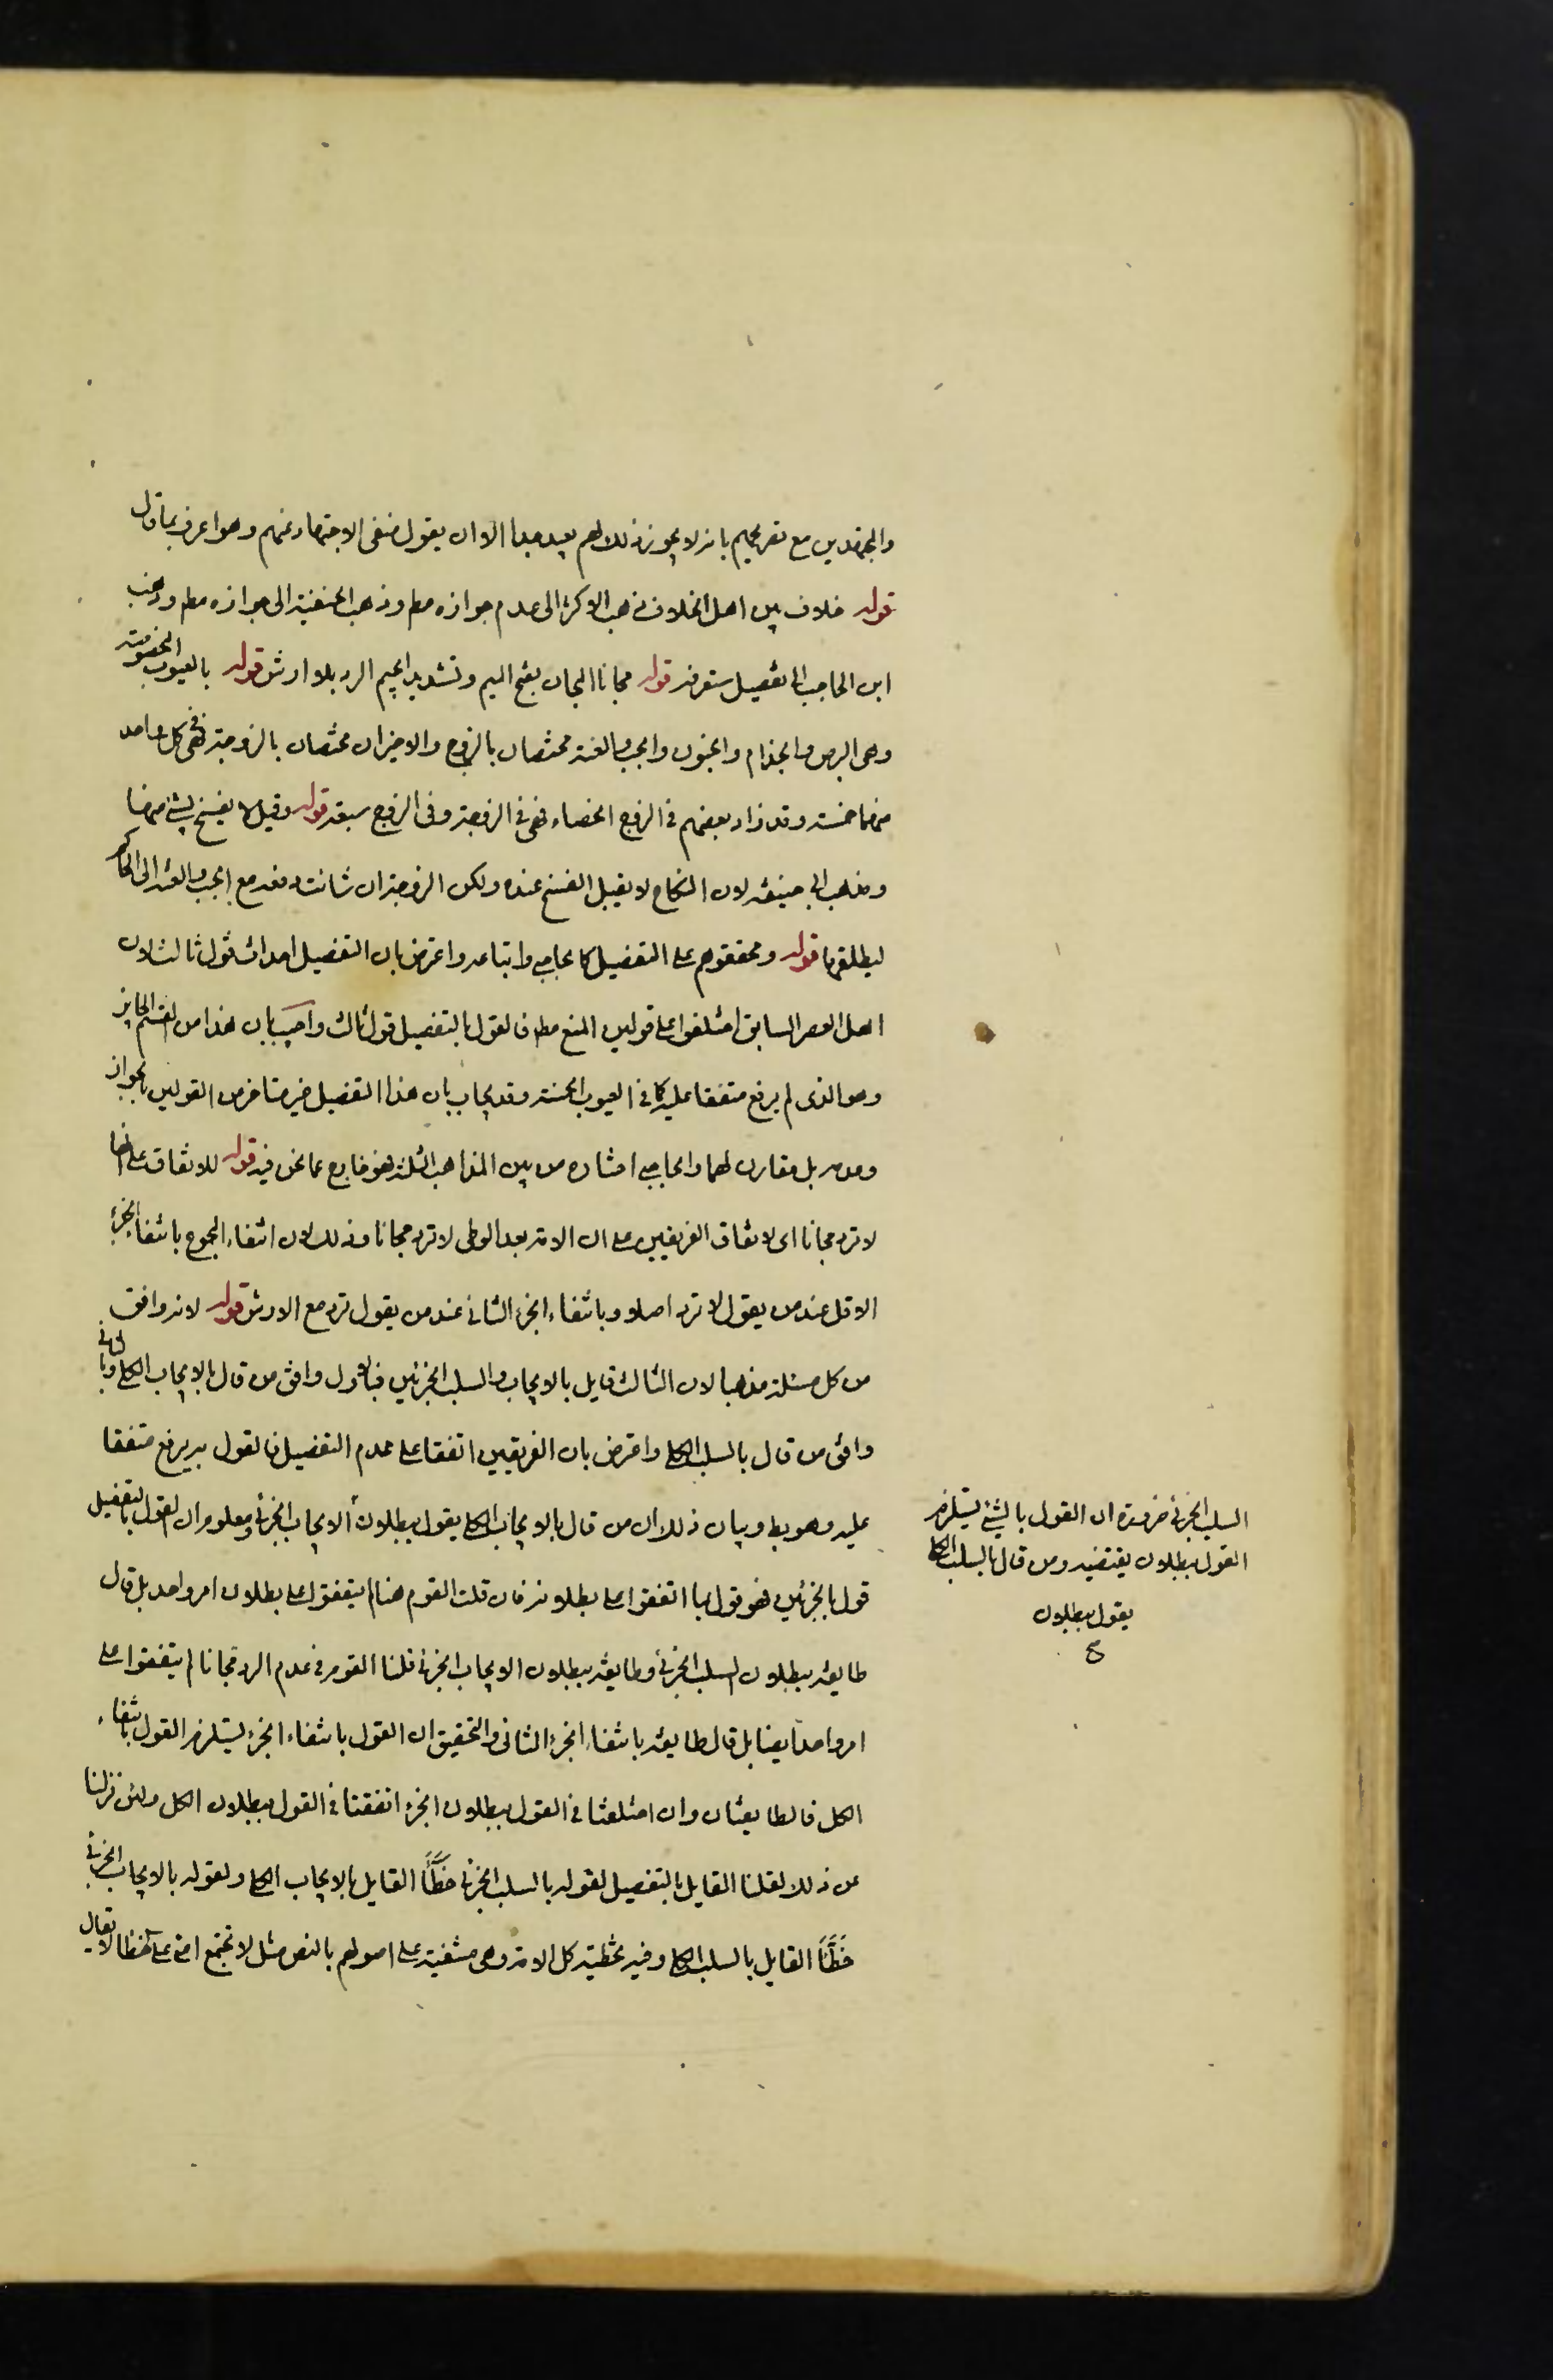 والمجتهدين مع تصريحهم بانه لا يجوز ذلك لهم بعيد جدا الا ان يقول ضنفى الاجتهاد عنهم وهو اعرف بما قال
قوله خلاف بين اهل الخلاف ذهب الاكثر الى عدم جوازه مط وذهب الحنفية الى جوازه مط وذهب
ابن الحاجب الى تفصيل ستعرفه قوله مجانا المجان بفتح الميم وتشديد الجيم الرد بلا ارش قوله بالعيوب المخصوصة
وهى البرص والجذام والجنون والجب والعنة مختصان بالزوج والاخيران مختصان بالزوجة ففى كل واحد
منهما خمسة وقد زاد بعضهم فى الزوج الخصاء فهى فى الزوجة وفى الزوج سبعة قوله وقيل لا يفسخ بشئ منهما
وهذا مذهب ابى حنيفة لان النكاح لا يقبل الفسخ عنده ولكن الزوجة ان شائت رفعته مع الجب والعنة الى الحاكم
ليطلقها قوله ومحققوهم على التفصيل كالحاجبى واتباعه واعترض بان التفصيل احداث قول ثالث لان
اهل العصر السابق اختلفوا على قولين المنع مط فالقول بالتفصيل قول ثالث واجيب بان هذا من القسم الجايز
وهو الذى لم يرفع متفقا عليه كما فى العيوب الخمسة وقد يجاب بان هذا التفصيل غير متاخر من القولين بالجواز
وعدمه بل مقارن لهما والحاجبى اختاره من بين المذاهب الثلثة فهو خارج عما نحن فيه قوله للاتفاق على انها
لا ترد مجانا اى لاتفاق الفريقين على ان الامة بعد الوطى لا ترد مجانا وذلك لان انتفاء المجموع بانتفاء الجزء
الاول عند من يقول لا ترد اصلا وبانتفاء الجزء الثانى عند من يقول ترد مع الارش قوله لانه وافق
من كل مسئلة مذهبا لان الثالث قايل بالايجاب والسلب الجزئيين فبالاول وافق من قال بالايجاب الكلى وبالثانى
وافق من قال بالسلب الكلى واعترض بان الفريقين اتفقا على عدم التفصيل فالقول به يرفع متفقا
عليه وهو بط وبيان ذلك ان من قال بالايجاب الكلى يقول ببطلان الايجاب الجزئى ومعلوم ان القول بالتفصيل
قول بالجزئين فهو قول بما اتفقوا على بطلانه فان قلت القوم هنا لم يتفقوا على بطلان امر واحد بل قال
طايفة ببطلان السلب الجزئى وطايفة ببطلان الايجاب الجزئى قلنا القوم فى عدم الرد مجانا لم يتفقوا على
امر واحد ايضا بل قال طايفة بانتفاء الجزء الثانى والتحقيق ان القول بانتفاء الجزء يستلزم القول بانتفاء
الكل فالطايفتان وان اختلفتا فى القول ببطلان الجزء اتفقتا فى القول ببطلان الكل ولئن نزلنا
عن ذلك لقلنا القايل بالتفصيل لقوله بالسلب الجزئى خطّأ القايل بالايجاب الكلى ولقوله بالايجاب الجزئى
خطّأ القايل بالسلب الكلى وفيه تخطئة كل الامة وهى منتفية على اصولهم بالنص مثل لا تجتمع امتى على الخطا لا يقال
السلب الجزئى ضرورة ان القول بالشئ يستلزم
القول ببطلان نقيضه ومن قال بالسلب الكلى
يقول ببطلان
صح